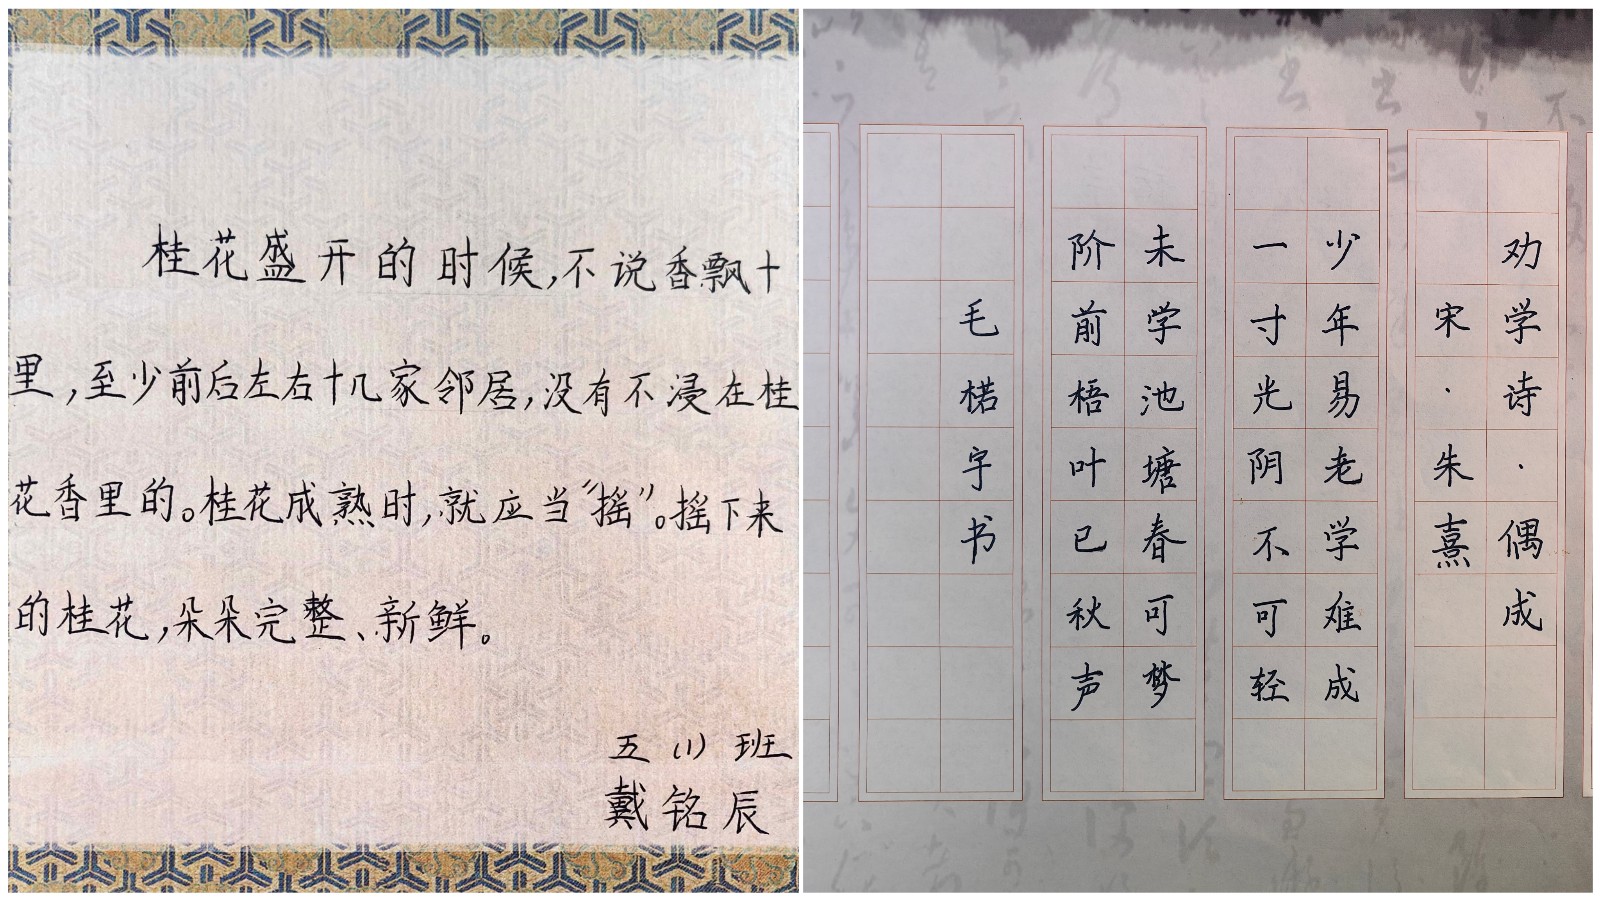 桂花盛开的时候,不说香飘十
里,至少前后左右十几家邻居,没有不浸在桂
花香里的。桂花成熟时,就应当“摇”。摇下来
的桂花,朵朵完整、新鲜。
五(1)班
戴铭辰
劝学诗·偶成
宋·朱熹
少年易老学难成
一寸光阴不可轻
未学池塘春可梦
阶前梧叶已秋声
毛楉宇书